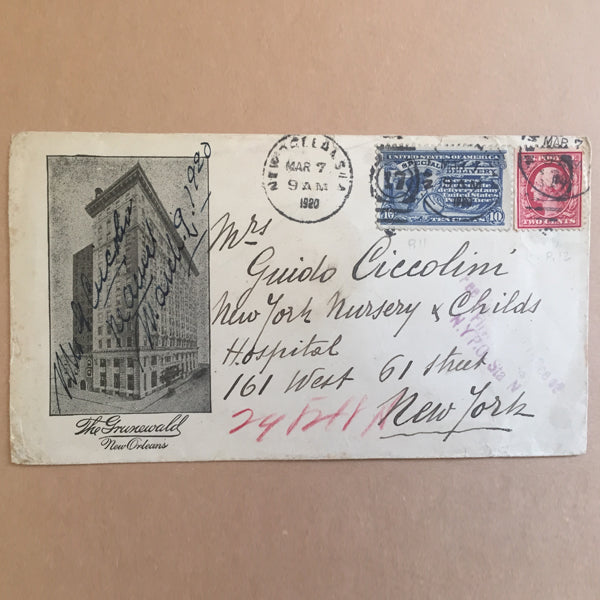 NEW ORLEANS, LA
MAR 7
9 AM
1920
MAR 7
UNITED STATES OF AMERICA
SPECIAL
DELIVERY
10 TEN CENTS 10
TWO CENTS
Mrs
Guido Ciccolini
New York Nursery & Childs
Hospital
161 West 61 street
New York
March 9. 1920
The Grunewald
New Orleans